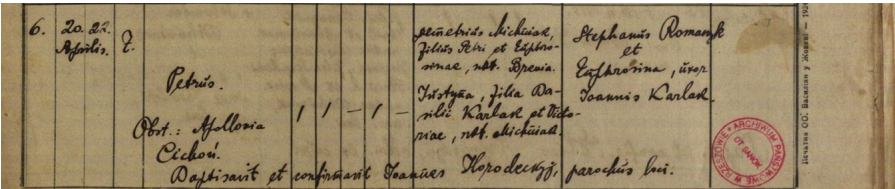 6. 20. 22.
Aprilis. 7.
Petrus.
Obst.: Apollonia
Cichoń.
Demetrius Michniak,
filius Petri et Euphro-
sinae, nat. Brenia.
Justyna, filia Ba-
silii Karlak et Victo-
riae, nat. Michniak.
Stephanus Romanyk
et
Euphrosina, uxor
Joannis Karlak.
Baptisavit et confirmavit Joannes Horodeckyj, parochus loci.
ARCHIWUM PAŃSTWOWE W RZESZOWIE
OT SANOK
Печатня ОО. Василіян у Жовкві